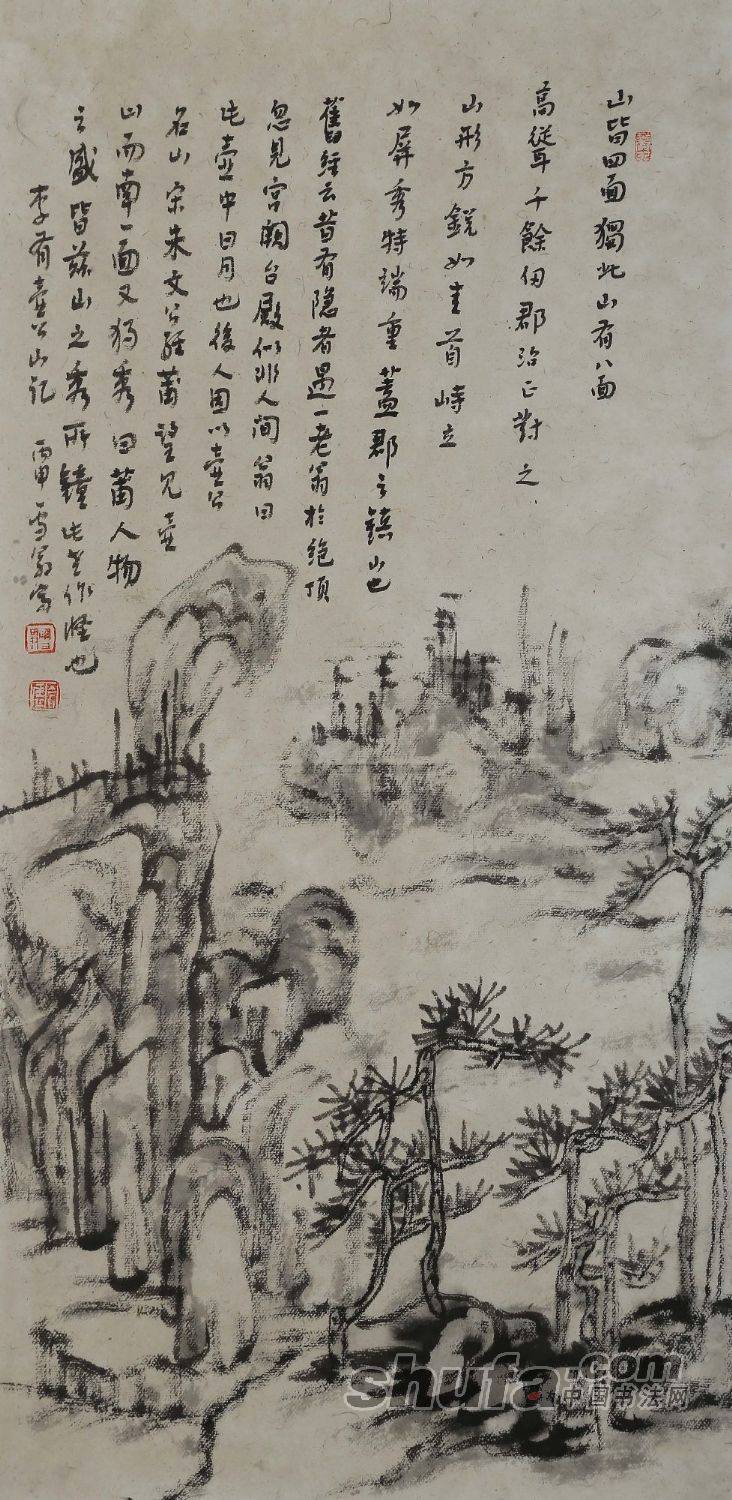 山皆四面獨此山有八面
高聳千餘仞郡治正對之
山形方銳如圭首峙立
如屏秀特端重蓋郡之鎮山也
舊經云昔有隐者遇一老翁於绝頂
忽見宫闕台殿似非人间翁曰
此壶中日月也後人因以壶公
名山宋朱文公經莆望见壶
山而南一面又独秀曰莆人物
之盛皆兹山之秀所鍾此老作怪也
李有壶公山記 丙申雪翁寫
shufa.com
中国书法网